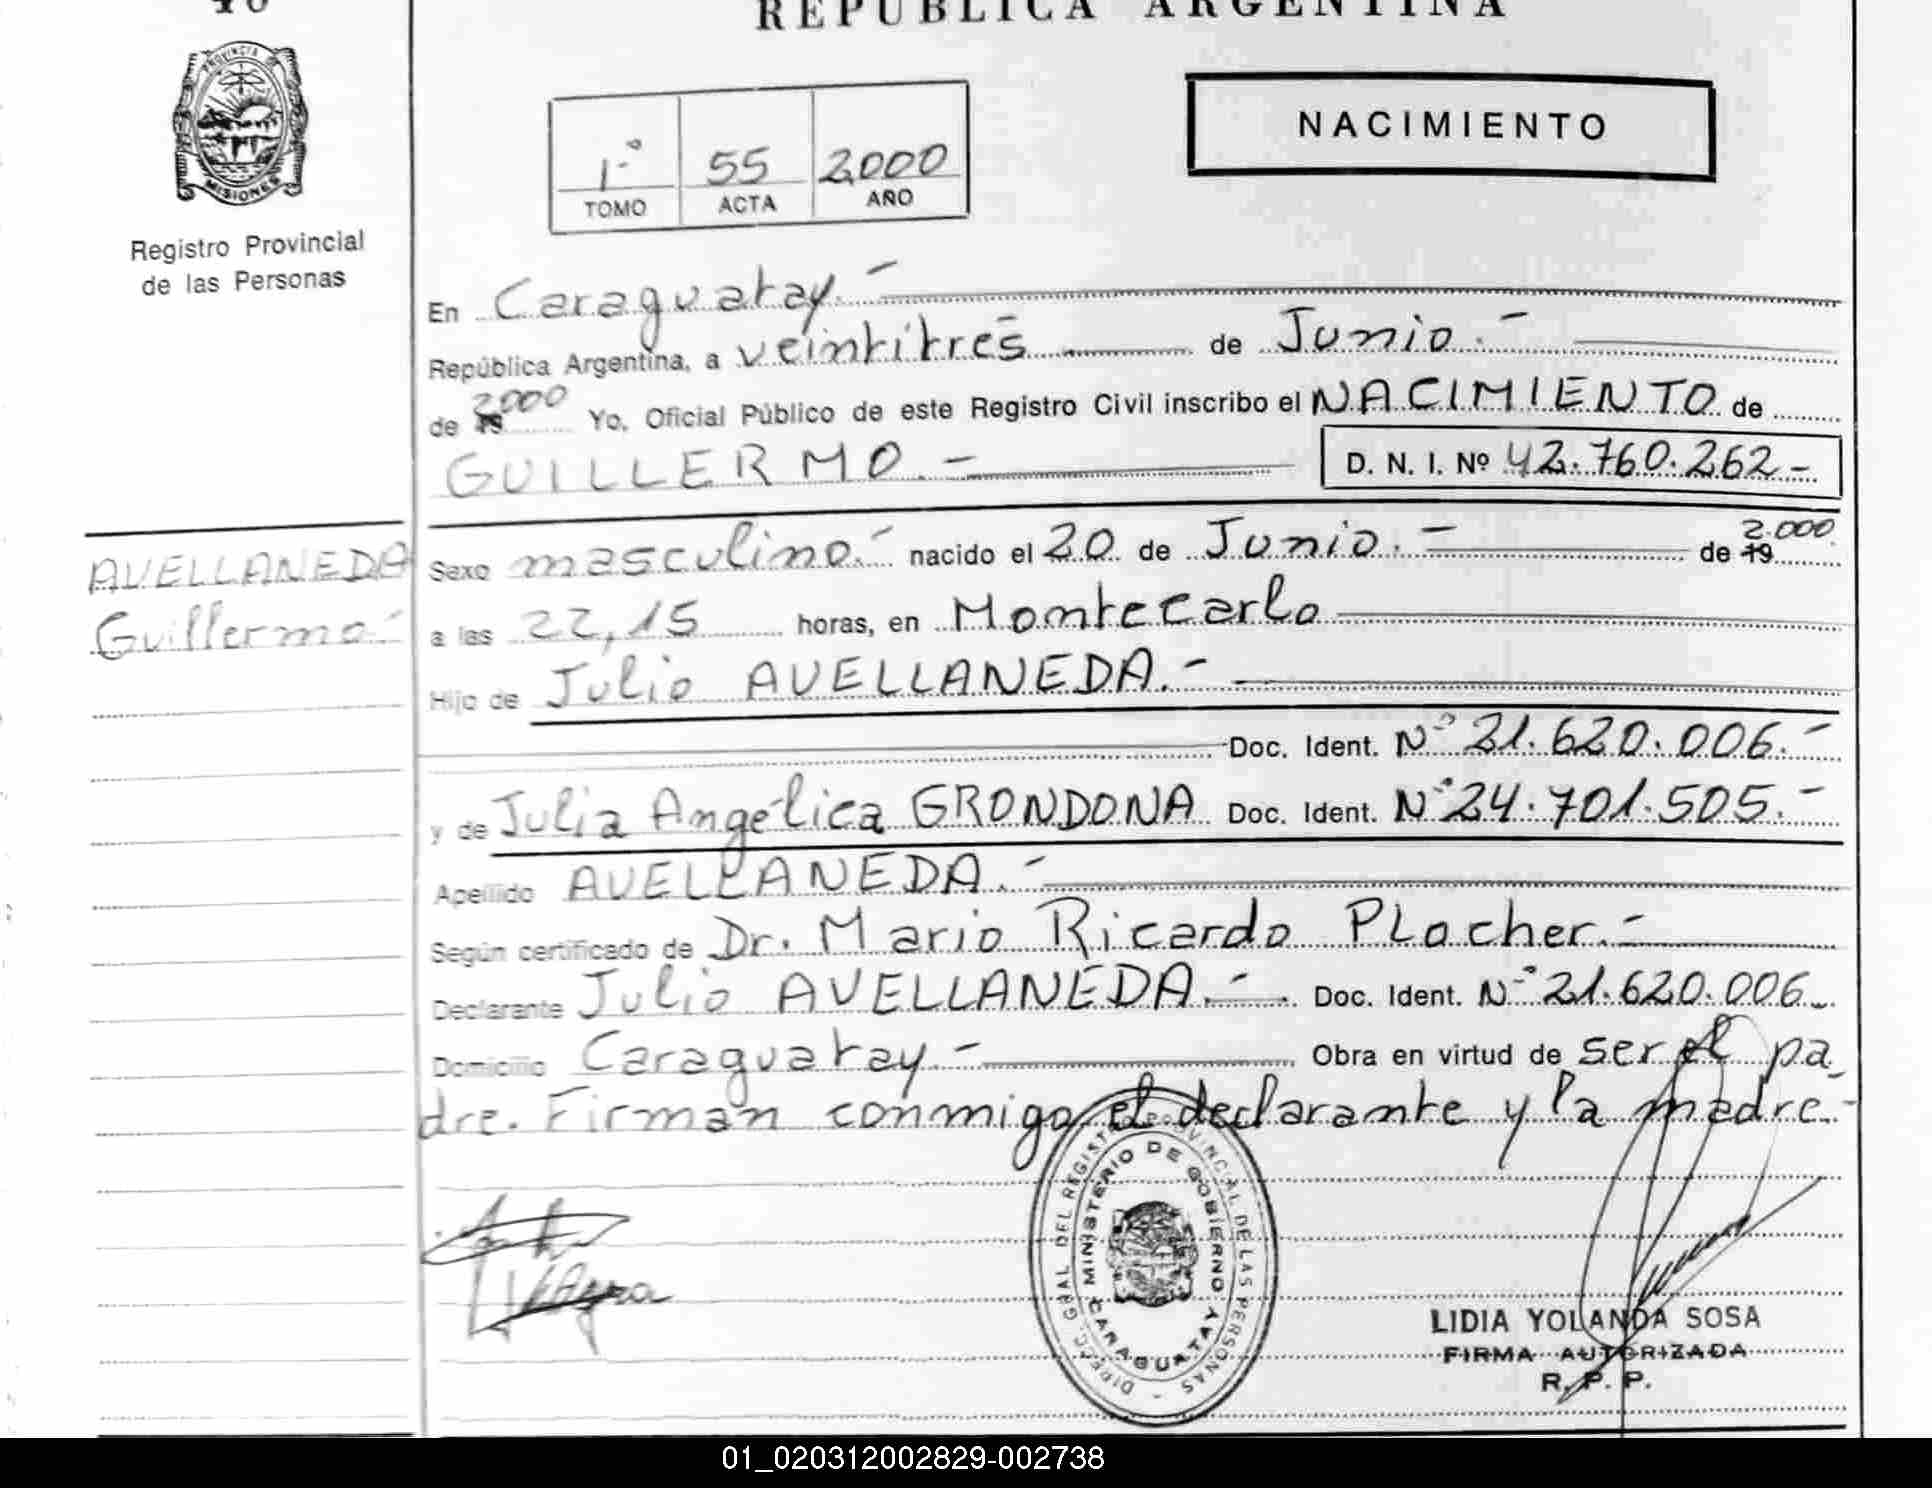 REPUBLICA ARGENTINA
PROVINCIA DE
MISIONES
Registro Provincial
de las Personas
1.º 55 2000
TOMO ACTA AÑO
NACIMIENTO
En Caraguatay.-
República Argentina, a veintitres de Junio.-
de 19 2000 Yo, Oficial Público de este Registro Civil inscribo el NACIMIENTO de
GUILLERMO.- D. N. I. Nº 42.760.262.-
AVELLANEDA
Guillermo.-
Sexo masculino.- nacido el 20 de Junio.- de 19 2.000
a las 22,15 horas, en Montecarlo
Hijo de Julio AVELLANEDA.-
Doc. Ident. Nº 21.620.006.-
y de Julia Angélica GRONDONA Doc. Ident. Nº 24.701.505.-
Apellido AVELLANEDA.-
Según certificado de Dr. Mario Ricardo PLocher.-
Declarante Julio AVELLANEDA.- Doc. Ident. Nº 21.620.006.-
Domicilio Caraguatay.- Obra en virtud de ser el pa
dre. Firman conmigo el declarante y la madre.-
DIRECC. GRAL. DEL REGISTRO PROVINCIAL DE LAS PERSONAS -
MINISTERIO DE GOBIERNO Y
CARAGUATAY
LIDIA YOLANDA SOSA
FIRMA AUTORIZADA
R. P. P.
01_020312002829-002738